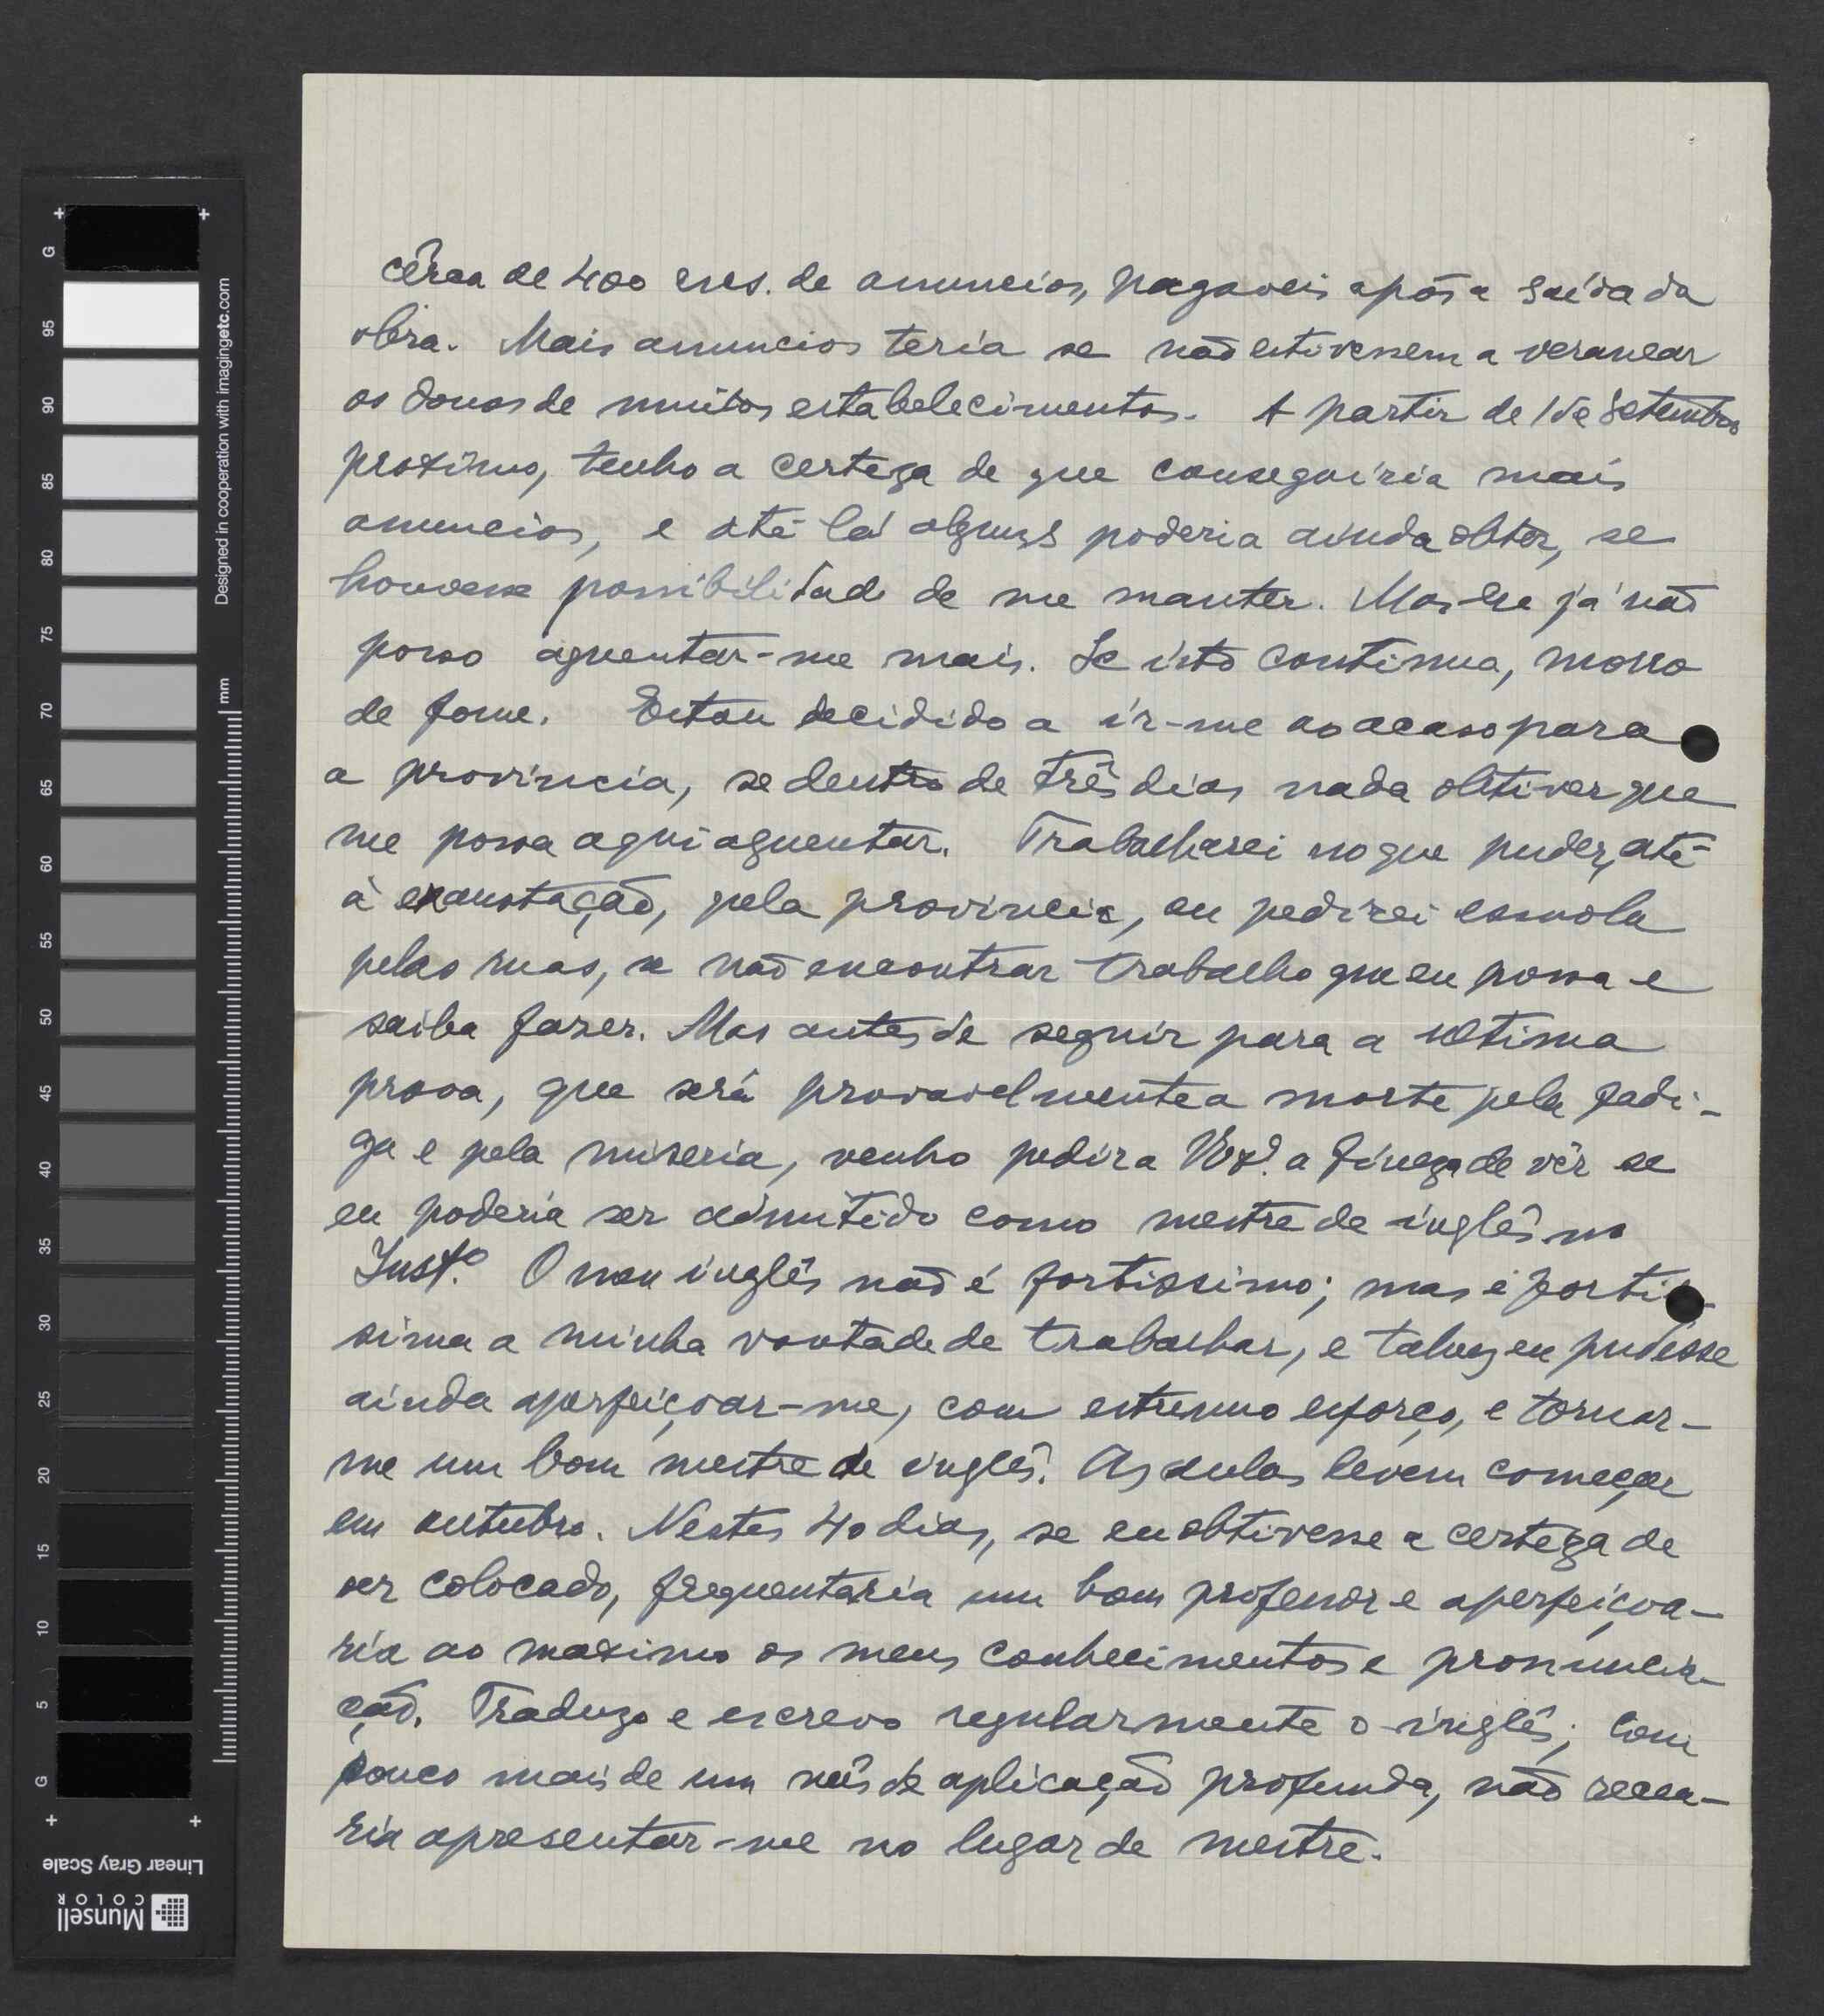 cêrca de 400 escs. de anuncios, pagaveis após a saída da
obra. Mais anuncios teria se não estivessem a veranear
os donos de muitos estabelecimentos. A partir de 1 de Setembro
proximo, tenho a certeza de que conseguiria mais
anuncios, e até lá alguns poderia ainda obter, se
houvesse possibilidade de me manter. Mas já não
posso aguentar-me mais. Se isto continua, morro
de fome. Estou decidido a ír-me ao acaso para
a provincia, se dentro de três dias nada obtiver que
me possa aqui aguentar. Trabalharei no que puder, até
à exaustação, pela provincia, ou pedirei esmola
pelas ruas, se não encontrar trabalho que eu possa e
saiba fazer. Mas antes de seguir para a ultima
prova, que será provavelmente a morte pela fadi-
ga e pela miseria, venho pedir a a fineza de vêr se
eu poderia ser admitido como mestre de inglês no
Inst.º O meu inglês não é fortissimo; mas é fortis-
sima a minha vontade de trabalhar, e talvez eu pudesse
ainda aperfeiçoar-me, com estremo esforço, e tornar-
me um bom mestre de inglês. As aulas devem começar
em outubro. Nestes 40 dias, se eu obtivesse a certeza de
ser colocado, frequentaria um bom professor e aperfeiçoa-
ria ao maximo os meus conhecimentos e pronuncia-
ção. Traduzo e escrevo regularmente o inglês; com
pouco mais de um mês de aplicação profunda, não recea-
ria apresentar-me no lugar de mestre.
G 95 90 85 80 75 70 65 60 55 50 45 40 35 30 25 20 15 10 5 G
mm
Designed in cooperation with imagingetc.com
Linear Gray Scale
Munsell
COLOR